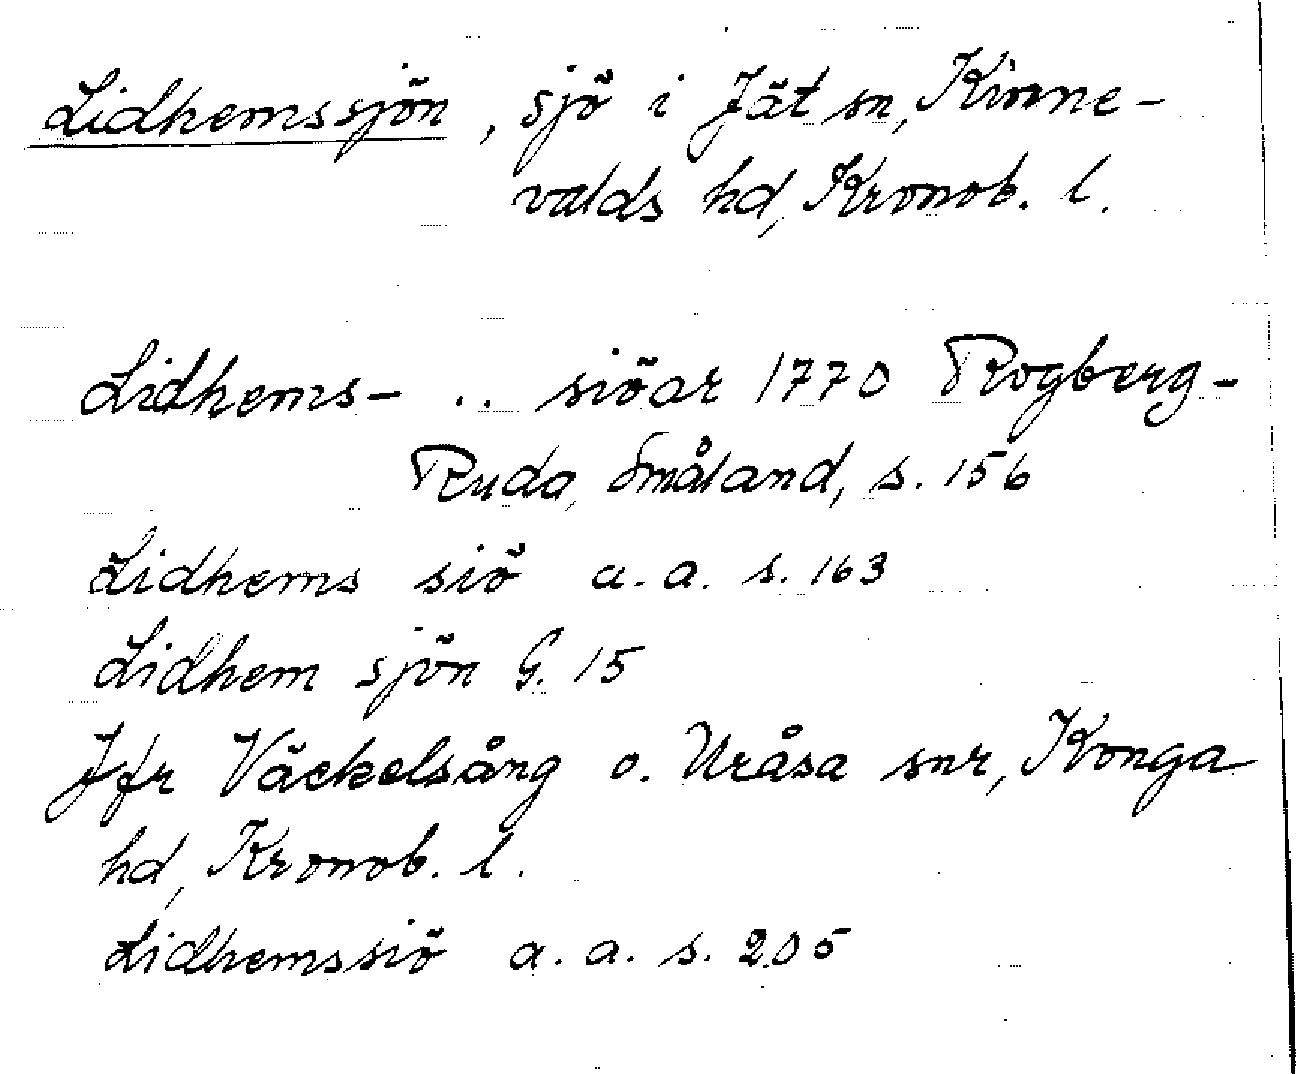 Lidhemssjön, sjö i Jät sn, Kinne-
valds hd, Kronob. l.
Lidhems- .. siöar 1770 Rogberg-
Ruda, Småland, s. 156
Lidhems siö a.a. s. 163
Lidhem sjön G. 15
Jfr Väckelsång o. Uråsa snr, Konga
hd, Kronob. l.
Lidhemssiö a.a. s. 205